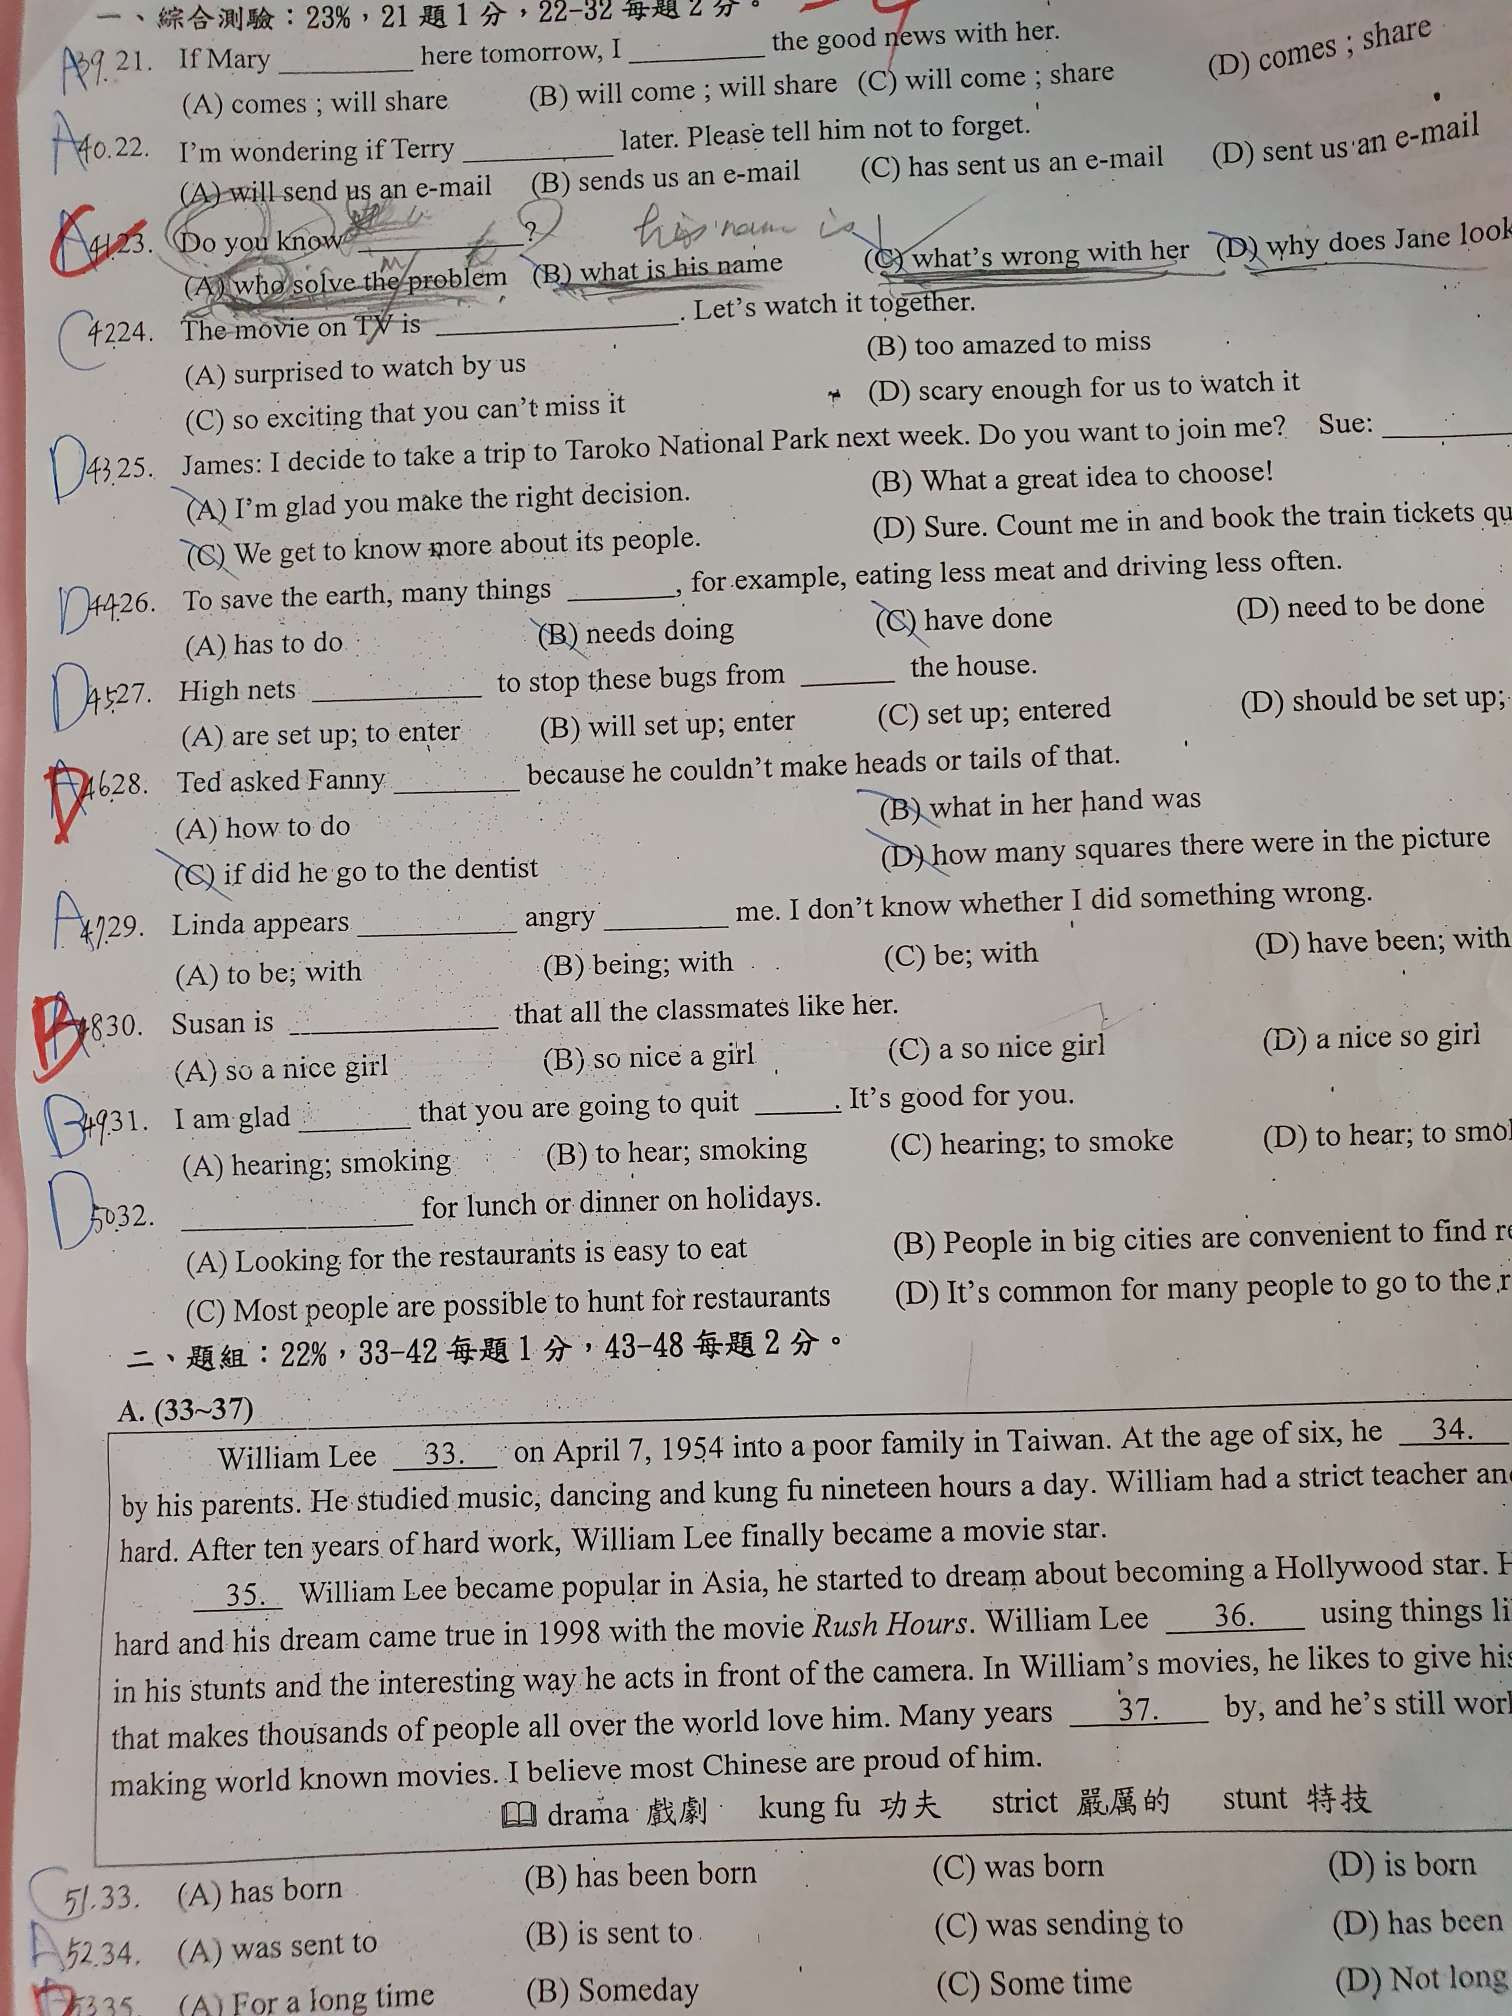 一、綜合測驗：23%，21 題 1 分，22-32 每題 2 分。
A 39. 21. If Mary ________ here tomorrow, I ________ the good news with her.
(A) comes ; will share (B) will come ; will share (C) will come ; share (D) comes ; share
A 40. 22. I'm wondering if Terry ________ later. Please tell him not to forget.
(A) will send us an e-mail (B) sends us an e-mail (C) has sent us an e-mail (D) sent us an e-mail
C A 41. 23. Do you know ________? his name is
(A) who solve the problem (B) what is his name (C) what's wrong with her (D) why does Jane look
C 42 24. The movie on TV is ________. Let's watch it together.
(A) surprised to watch by us (B) too amazed to miss
(C) so exciting that you can't miss it (D) scary enough for us to watch it
D 43. 25. James: I decide to take a trip to Taroko National Park next week. Do you want to join me? Sue: ________
(A) I'm glad you make the right decision. (B) What a great idea to choose!
(C) We get to know more about its people. (D) Sure. Count me in and book the train tickets qu
D 44. 26. To save the earth, many things ________, for example, eating less meat and driving less often.
(A) has to do (B) needs doing (C) have done (D) need to be done
D 45. 27. High nets ________ to stop these bugs from ________ the house.
(A) are set up; to enter (B) will set up; enter (C) set up; entered (D) should be set up;
D A 46. 28. Ted asked Fanny ________ because he couldn't make heads or tails of that.
(A) how to do (B) what in her hand was
(C) if did he go to the dentist (D) how many squares there were in the picture
A 47. 29. Linda appears ________ angry ________ me. I don't know whether I did something wrong.
(A) to be; with (B) being; with (C) be; with (D) have been; with
B A 48 30. Susan is ________ that all the classmates like her.
(A) so a nice girl (B) so nice a girl (C) a so nice girl (D) a nice so girl
B 49. 31. I am glad ________ that you are going to quit ________. It's good for you.
(A) hearing; smoking (B) to hear; smoking (C) hearing; to smoke (D) to hear; to smo
D 50. 32. ________ for lunch or dinner on holidays.
(A) Looking for the restaurants is easy to eat (B) People in big cities are convenient to find re
(C) Most people are possible to hunt for restaurants (D) It's common for many people to go to the r
二、題組：22%，33-42 每題 1 分，43-48 每題 2 分。
A. (33~37)
William Lee 33. on April 7, 1954 into a poor family in Taiwan. At the age of six, he 34.
by his parents. He studied music, dancing and kung fu nineteen hours a day. William had a strict teacher an
hard. After ten years of hard work, William Lee finally became a movie star.
35. William Lee became popular in Asia, he started to dream about becoming a Hollywood star. H
hard and his dream came true in 1998 with the movie Rush Hours. William Lee 36. using things li
in his stunts and the interesting way he acts in front of the camera. In William's movies, he likes to give his
that makes thousands of people all over the world love him. Many years 37. by, and he's still worl
making world known movies. I believe most Chinese are proud of him.
drama 戲劇 kung fu 功夫 strict 嚴厲的 stunt 特技
C 51. 33. (A) has born (B) has been born (C) was born (D) is born
A 52. 34. (A) was sent to (B) is sent to (C) was sending to (D) has been
53 35. (A) For a long time (B) Someday (C) Some time (D) Not long